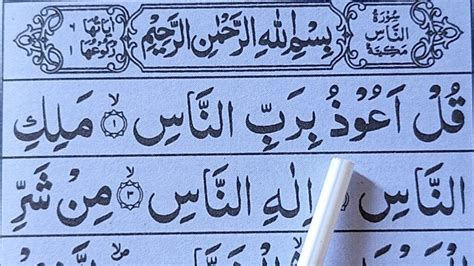 سُورَةُ النَّاسِ مَكِّيَّةٌ
بِسْمِ اللهِ الرَّحْمٰنِ الرَّحِيْمِ
اٰيَاتُهَا ٦
رُكُوْعُهَا ١
قُلْ اَعُوْذُ بِرَبِّ النَّاسِ ۙ﴿١﴾ مَلِكِ
النَّاسِ اِلٰهِ النَّاسِ ۙ﴿٣﴾ مِنْ شَرِّ